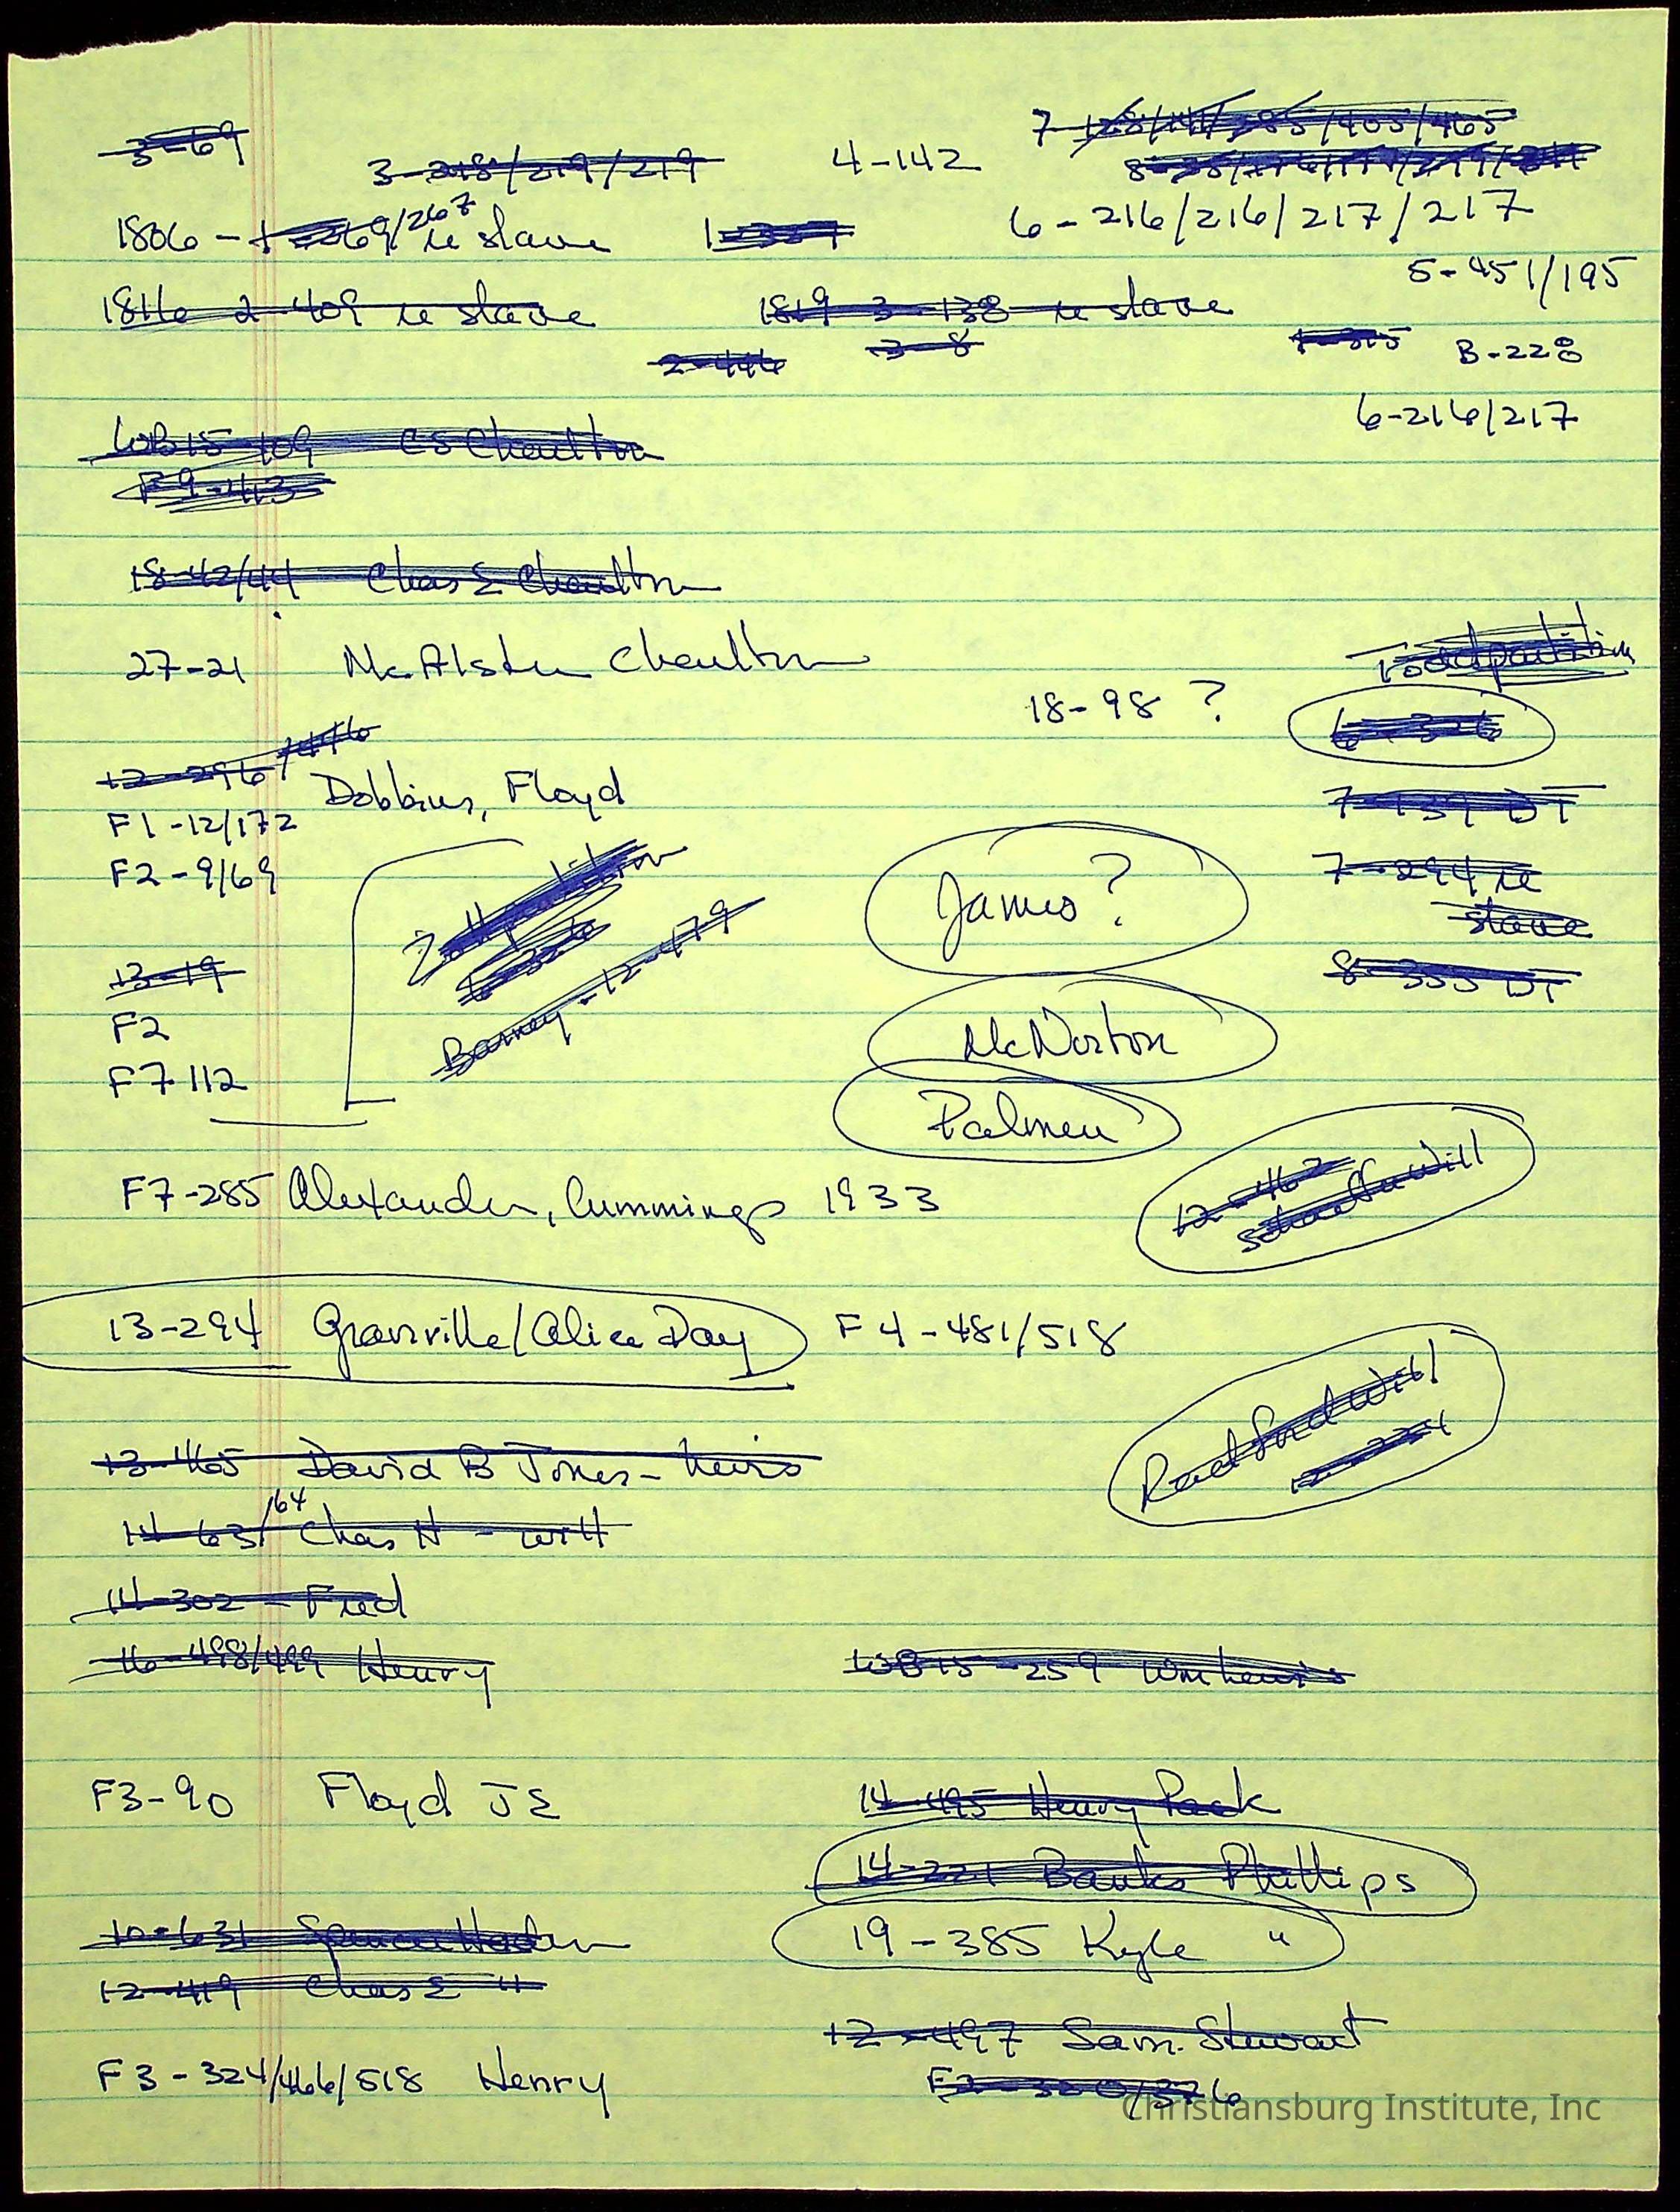 3-69
3-218/219/219
4-142
7-128/141/385/405/465
1806 - 269/267 re slave
6-216/216/217/217
5-451/195
1816 2-409 re slave
1819 3-138 re slave
2-446
3-8
1-315
B-228
6-216/217
WB15-109 CS Charlton
F9-413
18-42/44 Chas E Charlton
27-21 McAlster Charlton
18-98 ?
6-326
12-296/446
Dobbins, Floyd
F1-12/172
F2-9/69
7-139 DT
7-294 re
slave
8-333 DT
6-326
Barney-12-479
James?
McNorton
Palmer
13-19
F2
F7-112
F7-285 Alexander, Cummings 1933
12-462
Will
13-294 Granville/Alice Day F4-481/518
Radford Will
13-465 David B Jones-heirs
14-63/64 Chas H - will
14-302 - Fred
16-498/499 Henry
WB15-259 Wm Lewis
F3-90 Floyd JE
14-495 Henry Pack
14-221 Banks Phillips
19-385 Kyle "
10-631 Spencer
12-419 Chas E "
12-497 Sam. Stewart
F3-324/466/518 Henry
Christiansburg Institute, Inc